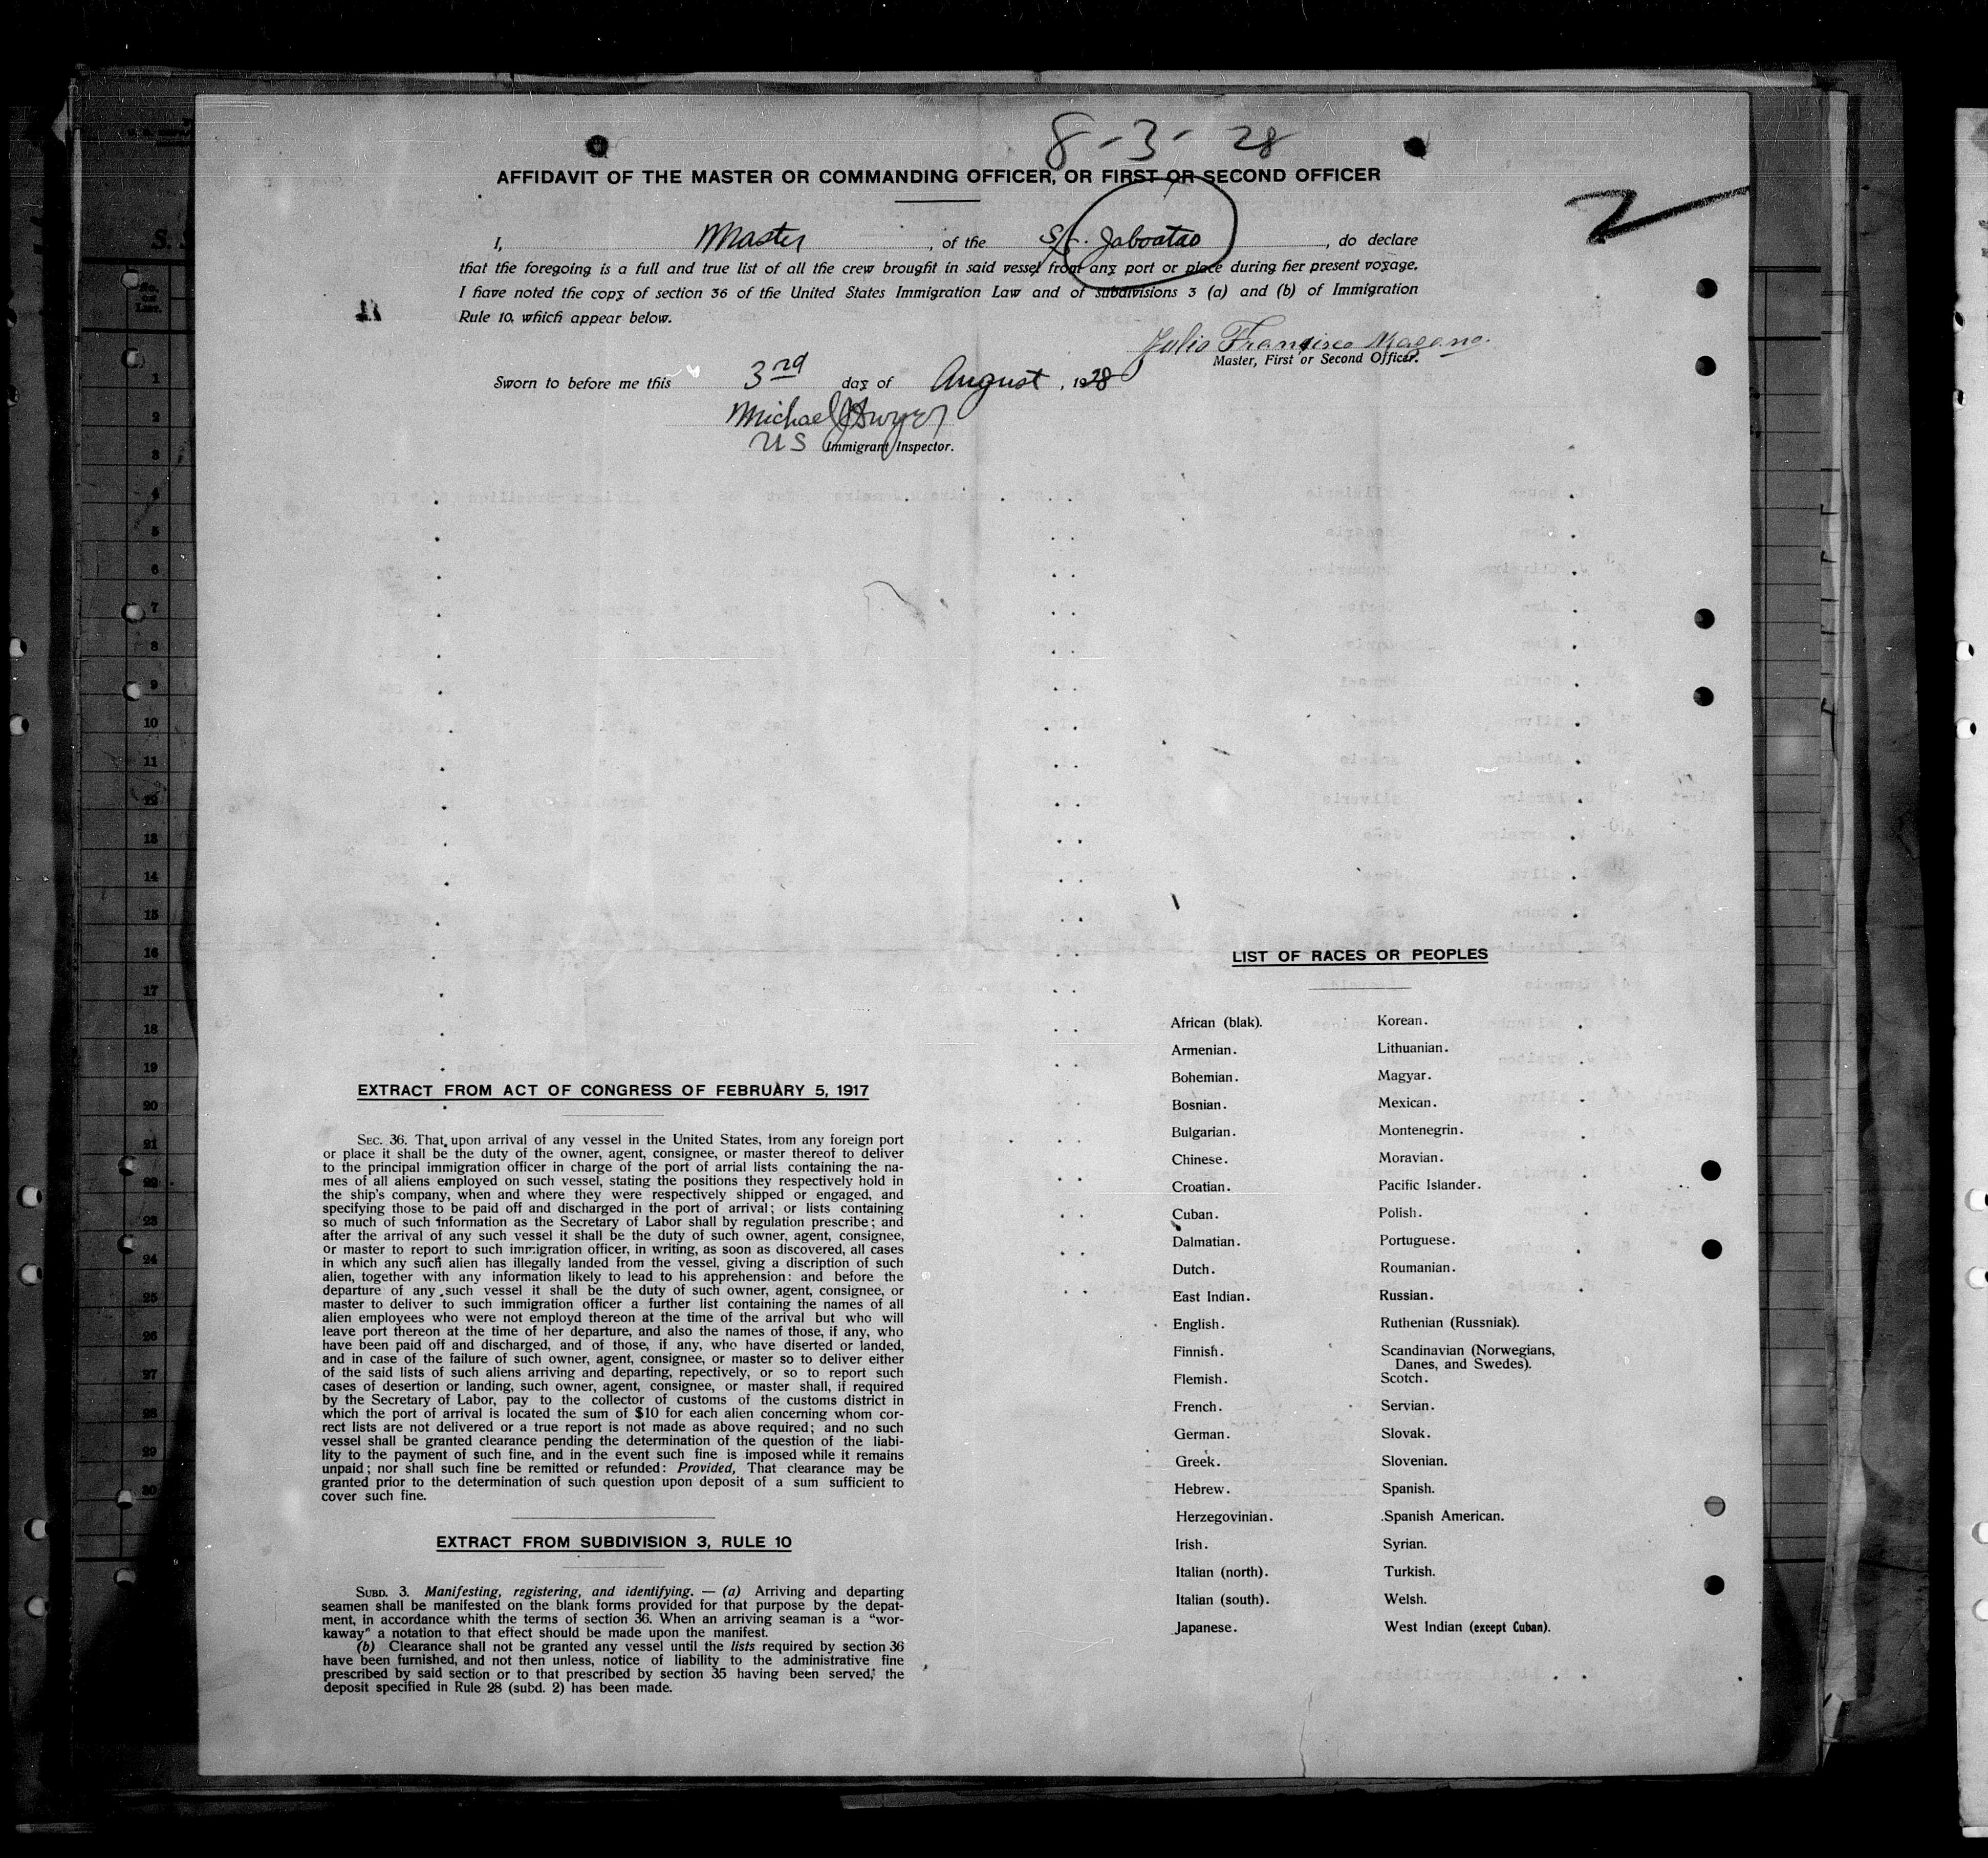 8-3-28
AFFIDAVIT OF THE MASTER OR COMMANDING OFFICER, OR FIRST OR SECOND OFFICER
2
I, Master, of the S/S. Jaboatao, do declare
that the foregoing is a full and true list of all the crew brought in said vessel from any port or place during her present voyage.
I have noted the copy of section 36 of the United States Immigration Law and of subdivisions 3 (a) and (b) of Immigration
Rule 10, which appear below.
Julio Francisco Magano.
Master, First or Second Officer.
Sworn to before me this 3rd day of August, 1928
Michael J Dwyer
US Immigrant Inspector.
LIST OF RACES OR PEOPLES
African (blak).
Armenian.
Bohemian.
Bosnian.
Bulgarian.
Chinese.
Croatian.
Cuban.
Dalmatian.
Dutch.
East Indian.
English.
Finnish.
Flemish.
French.
German.
Greek.
Hebrew.
Herzegovinian.
Irish.
Italian (north).
Italian (south).
Japanese.
Korean.
Lithuanian.
Magyar.
Mexican.
Montenegrin.
Moravian.
Pacific Islander.
Polish.
Portuguese.
Roumanian.
Russian.
Ruthenian (Russniak).
Scandinavian (Norwegians,
Danes, and Swedes).
Scotch.
Servian.
Slovak.
Slovenian.
Spanish.
Spanish American.
Syrian.
Turkish.
Welsh.
West Indian (except Cuban).
EXTRACT FROM ACT OF CONGRESS OF FEBRUARY 5, 1917
SEC. 36. That upon arrival of any vessel in the United States, from any foreign port
or place it shall be the duty of the owner, agent, consignee, or master thereof to deliver
to the principal immigration officer in charge of the port of arrial lists containing the na-
mes of all aliens employed on such vessel, stating the positions they respectively hold in
the ship's company, when and where they were respectively shipped or engaged, and
specifying those to be paid off and discharged in the port of arrival; or lists containing
so much of such information as the Secretary of Labor shall by regulation prescribe; and
after the arrival of any such vessel it shall be the duty of such owner, agent, consignee,
or master to report to such immigration officer, in writing, as soon as discovered, all cases
in which any such alien has illegally landed from the vessel, giving a discription of such
alien, together with any information likely to lead to his apprehension: and before the
departure of any such vessel it shall be the duty of such owner, agent, consignee, or
master to deliver to such immigration officer a further list containing the names of all
alien employees who were not employd thereon at the time of the arrival but who will
leave port thereon at the time of her departure, and also the names of those, if any, who
have been paid off and discharged, and of those, if any, who have diserted or landed,
and in case of the failure of such owner, agent, consignee, or master so to deliver either
of the said lists of such aliens arriving and departing, repectively, or so to report such
cases of desertion or landing, such owner, agent, consignee, or master shall, if required
by the Secretary of Labor, pay to the collector of customs of the customs district in
which the port of arrival is located the sum of $10 for each alien concerning whom cor-
rect lists are not delivered or a true report is not made as above required; and no such
vessel shall be granted clearance pending the determination of the question of the liabi-
lity to the payment of such fine, and in the event such fine is imposed while it remains
unpaid; nor shall such fine be remitted or refunded: Provided, That clearance may be
granted prior to the determination of such question upon deposit of a sum sufficient to
cover such fine.
EXTRACT FROM SUBDIVISION 3, RULE 10
SUBD. 3. Manifesting, registering, and identifying. — (a) Arriving and departing
seamen shall be manifested on the blank forms provided for that purpose by the depat-
ment, in accordance whith the terms of section 36. When an arriving seaman is a "wor-
kaway" a notation to that effect should be made upon the manifest.
(b) Clearance shall not be granted any vessel until the lists required by section 36
have been furnished, and not then unless, notice of liability to the administrative fine
prescribed by said section or to that prescribed by section 35 having been served, the
deposit specified in Rule 28 (subd. 2) has been made.
No.
on
List.
1
2
3
4
5
6
7
8
9
10
11
12
13
14
15
16
17
18
19
20
21
22
23
24
25
26
27
28
29
30